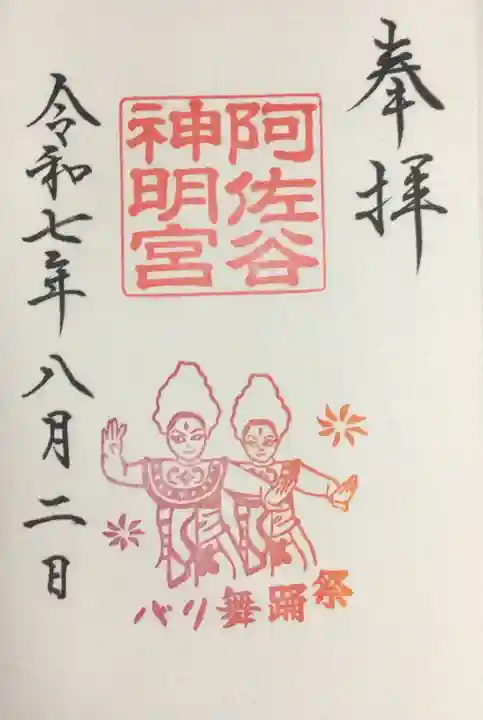 奉拝
阿佐谷
神明宮
バリ舞踊祭
令和七年八月二日